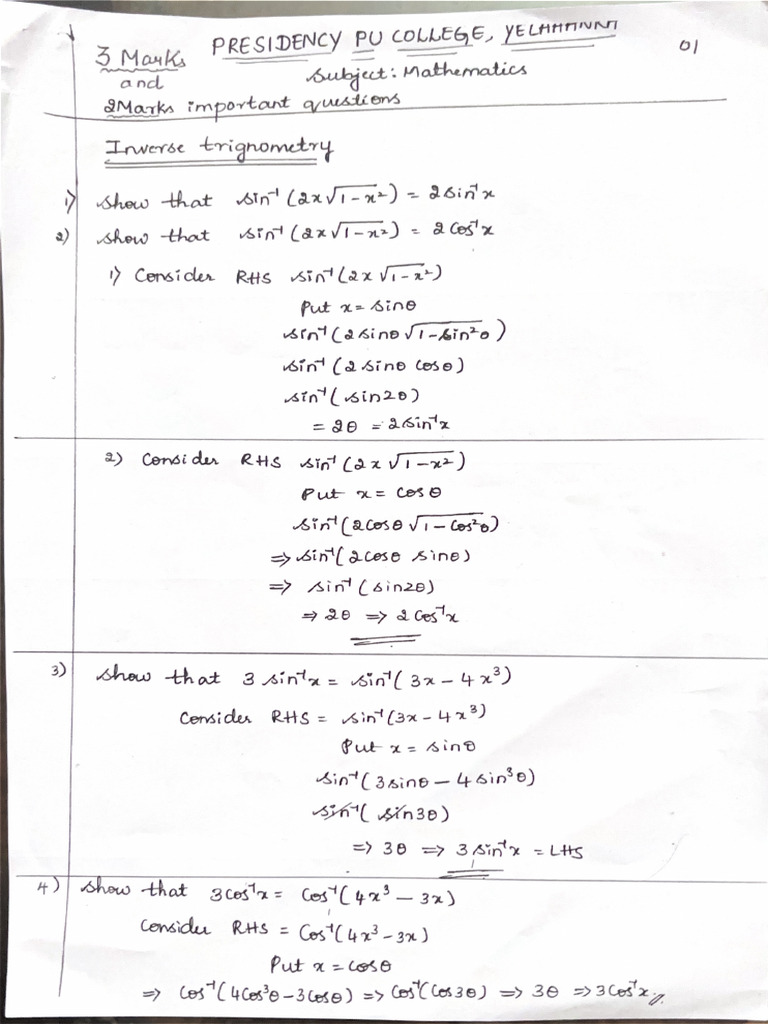 3 Marks PRESIDENCY PU COLLEGE, YELAHANKA 01
and Subject: Mathematics
2Marks important questions
Inverse trignometry
1) show that sin⁻¹(2x√1-x²) = 2sin⁻¹x
2) show that sin⁻¹(2x√1-x²) = 2cos⁻¹x
1) Consider RHS sin⁻¹(2x√1-x²)
Put x = sinθ
sin⁻¹(2sinθ√1-sin²θ)
sin⁻¹(2sinθ cosθ)
sin⁻¹(sin2θ)
= 2θ = 2sin⁻¹x
2) Consider RHS sin⁻¹(2x√1-x²)
Put x = cosθ
sin⁻¹(2cosθ√1-cos²θ)
⇒ sin⁻¹(2cosθ sinθ)
⇒ sin⁻¹(sin2θ)
⇒ 2θ ⇒ 2cos⁻¹x
3) show that 3 sin⁻¹x = sin⁻¹(3x - 4x³)
Consider RHS = sin⁻¹(3x - 4x³)
Put x = sinθ
sin⁻¹(3sinθ - 4sin³θ)
sin⁻¹(sin3θ)
⇒ 3θ ⇒ 3sin⁻¹x = LHS
4) show that 3cos⁻¹x = cos⁻¹(4x³ - 3x)
Consider RHS = Cos⁻¹(4x³-3x)
Put x = cosθ
⇒ cos⁻¹(4cos³θ-3cosθ) ⇒ cos⁻¹(cos3θ) ⇒ 3θ ⇒ 3cos⁻¹x